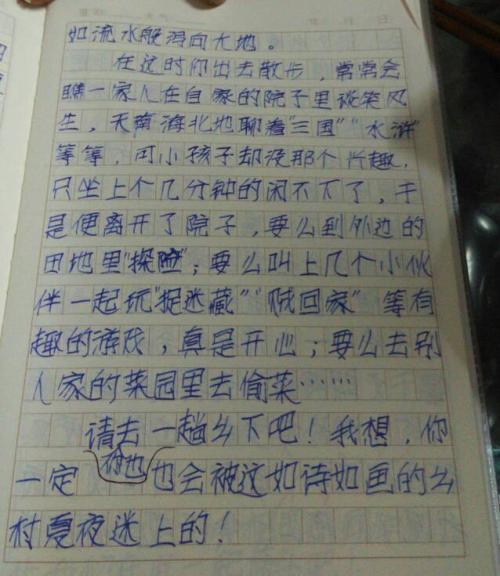 如流水般泻向大地。
在这时你出去散步，常常会
瞧一家人在自家的院子里谈笑风
生，天南海北地聊着"三国""水浒"
等等，可小孩子却没那个兴趣，
只坐上个几分钟的闲不下了，于
是便离开了院子，要么到外边的
田地里"探险"；要么叫上几个小伙
伴一起玩"捉迷藏""贼回家"等有
趣的游戏，真是开心；要么去别
人家的菜园里去偷菜……
请去一趟乡下吧！我想，你
一定你也也会被这如诗如画的乡
村夏夜迷上的！